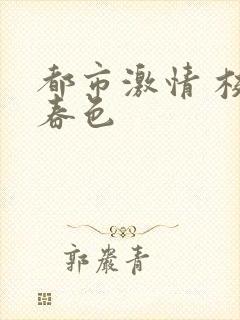 都市激情 校
春色
郭嚴青